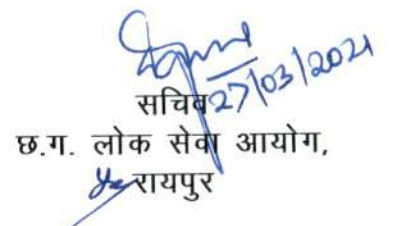 27/03/2021
सचिव
छ.ग. लोक सेवा आयोग,
रायपुर